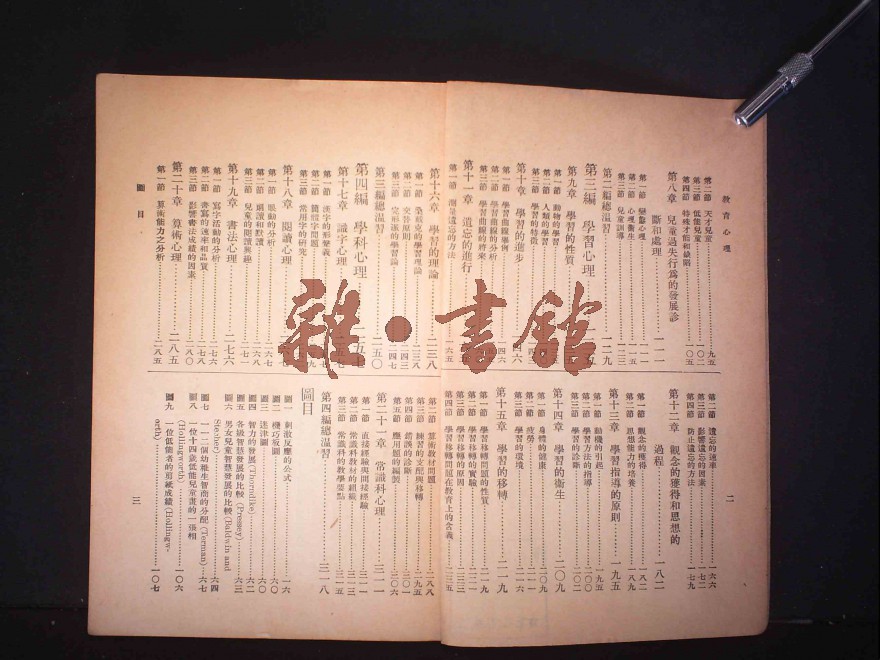 教育心理
第二節 天才兒童……九五
第三節 低能兒童……一〇二
第四節 特殊才能和缺陷……一〇五
第八章 兒童過失行爲的發展診
斷和處理……一一一
第一節 變態心理……一一一
第二節 心理衞生……一一五
第三節 兒童訓導……一二三
第二編總温習……一二九
第三編 學習心理
第九章 學習的性質
第一節 動物的學習
第二節 人類的學習
第三節 學習的特徵
第十章 學習的進步
第一節 學習曲線舉例
第二節 學習曲線的分析
第三節 學習曲線的將來
第十一章 遺忘的進行
第一節 測量遺忘的方法……一六五
二
第二節 遺忘的速率……一六六
第三節 影響遺忘的因素……一七二
第四節 防止遺忘的方法……一七九
第十二章 觀念的獲得和思想的
過程……一八二
第一節 觀念的獲得……一八二
第二節 思想能力的培養……一八九
第十三章 學習指導的原則……一九五
第一節 動機的引起……一九五
第二節 學習方法的指導
第三節 學習的診斷
第十四章 學習的衞生……二〇九
第一節 身體的健康……二〇九
第二節 疲勞……二一一
第三節 學習的環境……二一六
第十五章 學習的移轉……二一九
第一節 學習移轉問題的性質
第二節 學習移轉的實驗
第三節 學習移轉的原因
第四節 學習移轉問題在教育上的含義……二三五
圖目
第十六章 學習的理論……二三八
第一節 桑戴克的學習理論……二三八
第二節 交替原則……二四三
第三節 完形派的學習論……二四七
第三編總温習……二五〇
第四編 學科心理
第十七章 識字心理
第一節 漢字的形聲義
第二節 簡體字問題
第三節 常用字的研究
第十八章 閱讀心理
第一節 眼動的分析……二六七
第二節 朗讀和默讀……二六八
第三節 兒童的閱讀興趣……二七一
第十九章 書法心理……二七六
第一節 寫字活動的分析……二七六
第二節 書寫的速率和品質……二七八
第三節 影響書法成績的因素……二八〇
第二十章 算術心理……二八五
第一節 算術能力之分析……二八五
三
第二節 算術教材問題……二八八
第三節 練習的支配與移轉……二九五
第四節 錯誤的診斷……二〇一
第五節 應用題的編製……三〇六
第二十一章 常識科心理……三一一
第一節 直接經驗與間接經驗……三一一
第二節 常識科教材的組織……三一三
第三節 常識科的教學要點……三一五
第四編總温習……三一八
圖目
圖一 刺激反應的公式……一六
圖二 機巧板圖……六〇
圖三 迷津圖……六〇
圖四 智力的發展(Thorndike)……六二
圖五 各級智慧發展的比較(Pressey)……六三
圖六 男女兒童智慧發展的比較(Baldwin and
Stecher)……六四
圖七 一一二個幼稚生智商的分配(Terman)……六七
圖八 一位十四歲低能兒童畫的一張相
(Hollingworth)……一〇六
圖九 一位低能者的剪紙成績(Hollingw-
orth)……一〇七
雜·書館